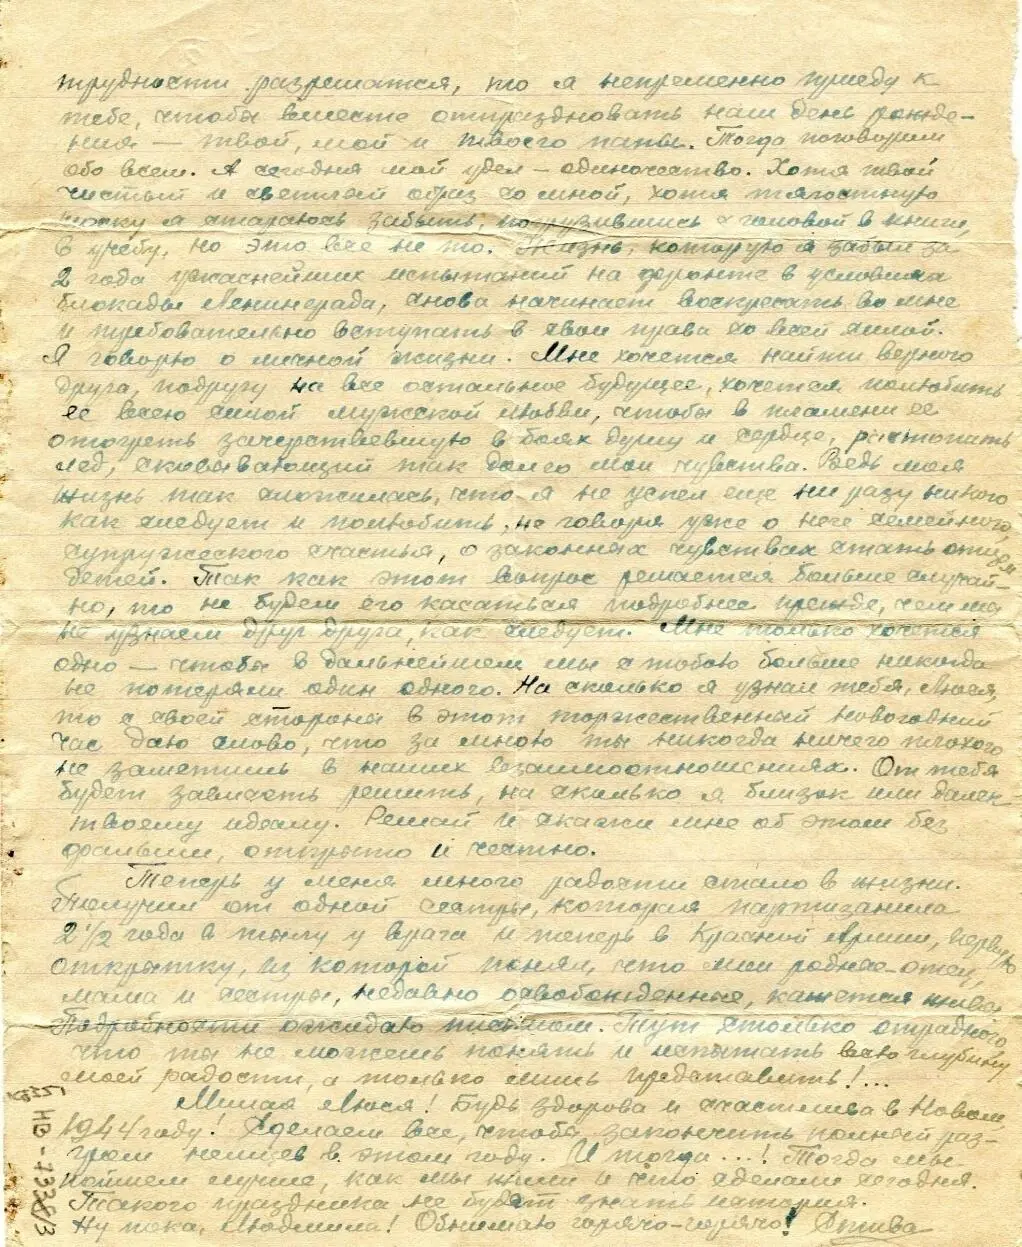 трудности разрешатся, то я непременно приеду к
тебе, чтобы вместе отпраздновать наш день рожде-
ния — твой, мой и твоего папы. Тогда поговорим
обо всем. А сегодня мой удел — одиночество. Хотя твой
чистый и светлый образ со мной, хотя тягостную
тоску я стараюсь забыть, погрузившись с головой в книги,
в учебу, но это все не то. Жизнь, которую я забыл за
2 года ужаснейших испытаний на фронте в условиях
блокады Ленинграда, снова начинает воскресать во мне
и требовательно вступать в свои права со всей силой.
Я говорю о личной жизни. Мне хочется найти верного
друга, подругу на все остальное будущее, хочется полюбить
ее всею силой мужской любви, чтобы в пламени ее
отогреть зачерствевшую в боях душу и сердце, растопить
лед, сковывающий так долго мои чувства. Ведь моя
жизнь так сложилась, что я не успел еще ни разу никого
как следует и полюбить, не говоря уже о неге семейного,
супружеского счастья, о законных чувствах стать отцом
детей. Так как этот вопрос решается больше случай-
но, то не будем его касаться подробнее прежде, чем мы
не узнаем друг друга, как следует. Мне только хочется
одно — чтобы в дальнейшем мы с тобою больше никогда
не потеряли один одного. На сколько я узнал тебя, Люся,
то с своей стороны в этот торжественный новогодний
час даю слово, что за мною ты никогда ничего плохого
не заметишь в наших взаимоотношениях. От тебя
будет зависеть решить, на сколько я близок или далек
твоему идеалу. Решай и скажи мне об этом без
фальши, открыто и честно.
Теперь у меня много радости стало в жизни.
Получил от одной сестры, которая партизанила
2 1/2 года в тылу у врага и теперь в Красной Армии, первую
открытку, из которой понял, что мои родные — отец,
мама и сестры, недавно освобожденные, кажется живы.
Подробности ожидаю письмом. Тут столько отрадного,
что ты не можешь понять и испытать всю глубину
моей радости, а только лишь представить!...
Милая Люся! Будь здорова и счастлива в Новом,
1944 году! Сделаем все, чтобы закончить полный раз-
гром немцев в этом году. И тогда...! Тогда мы
поймем лучше, как мы жили и что сделали сегодня.
Такого праздника не будет знать история.
Ну пока, Людмила! Обнимаю горячо-горячо!
НВ-7338/3